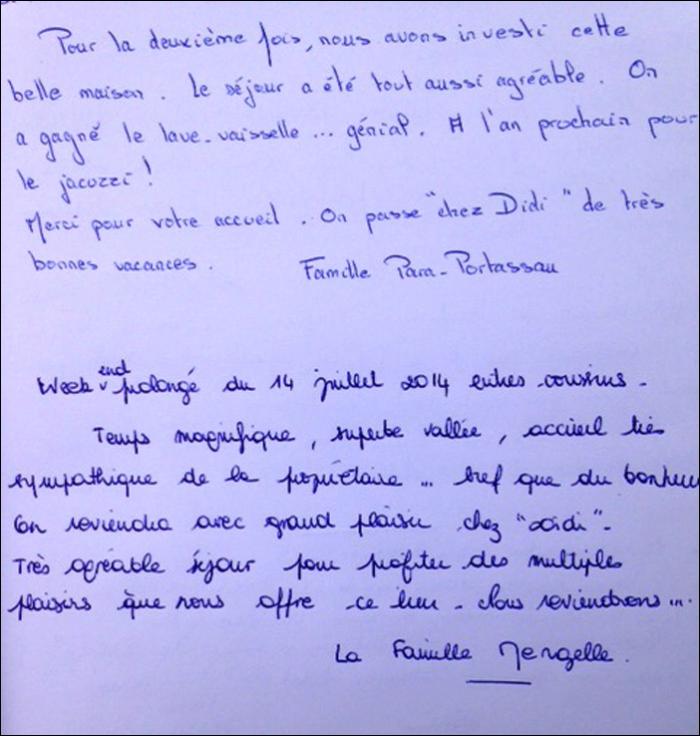 Pour la deuxième fois, nous avons investi cette
belle maison. Le séjour a été tout aussi agréable. On
a gagné le lave-vaisselle ... génial. A l'an prochain pour
le jacozzi !
Merci pour votre accueil. On passe "chez Didi" de très
bonnes vacances.
Famille Para-Portassau
Week end prolongé du 14 juillet 2014 entres cousins.
Temps magnifique, superbe vallée, accueil très
sympathique de la propriétaire ... bref que du bonheur
On reviendra avec grand plaisir chez "Didi".
Très agréable séjour pour profiter des multiples
plaisirs que nous offre ce lieu. Nous reviendrons ...
La Famille Mengelle.